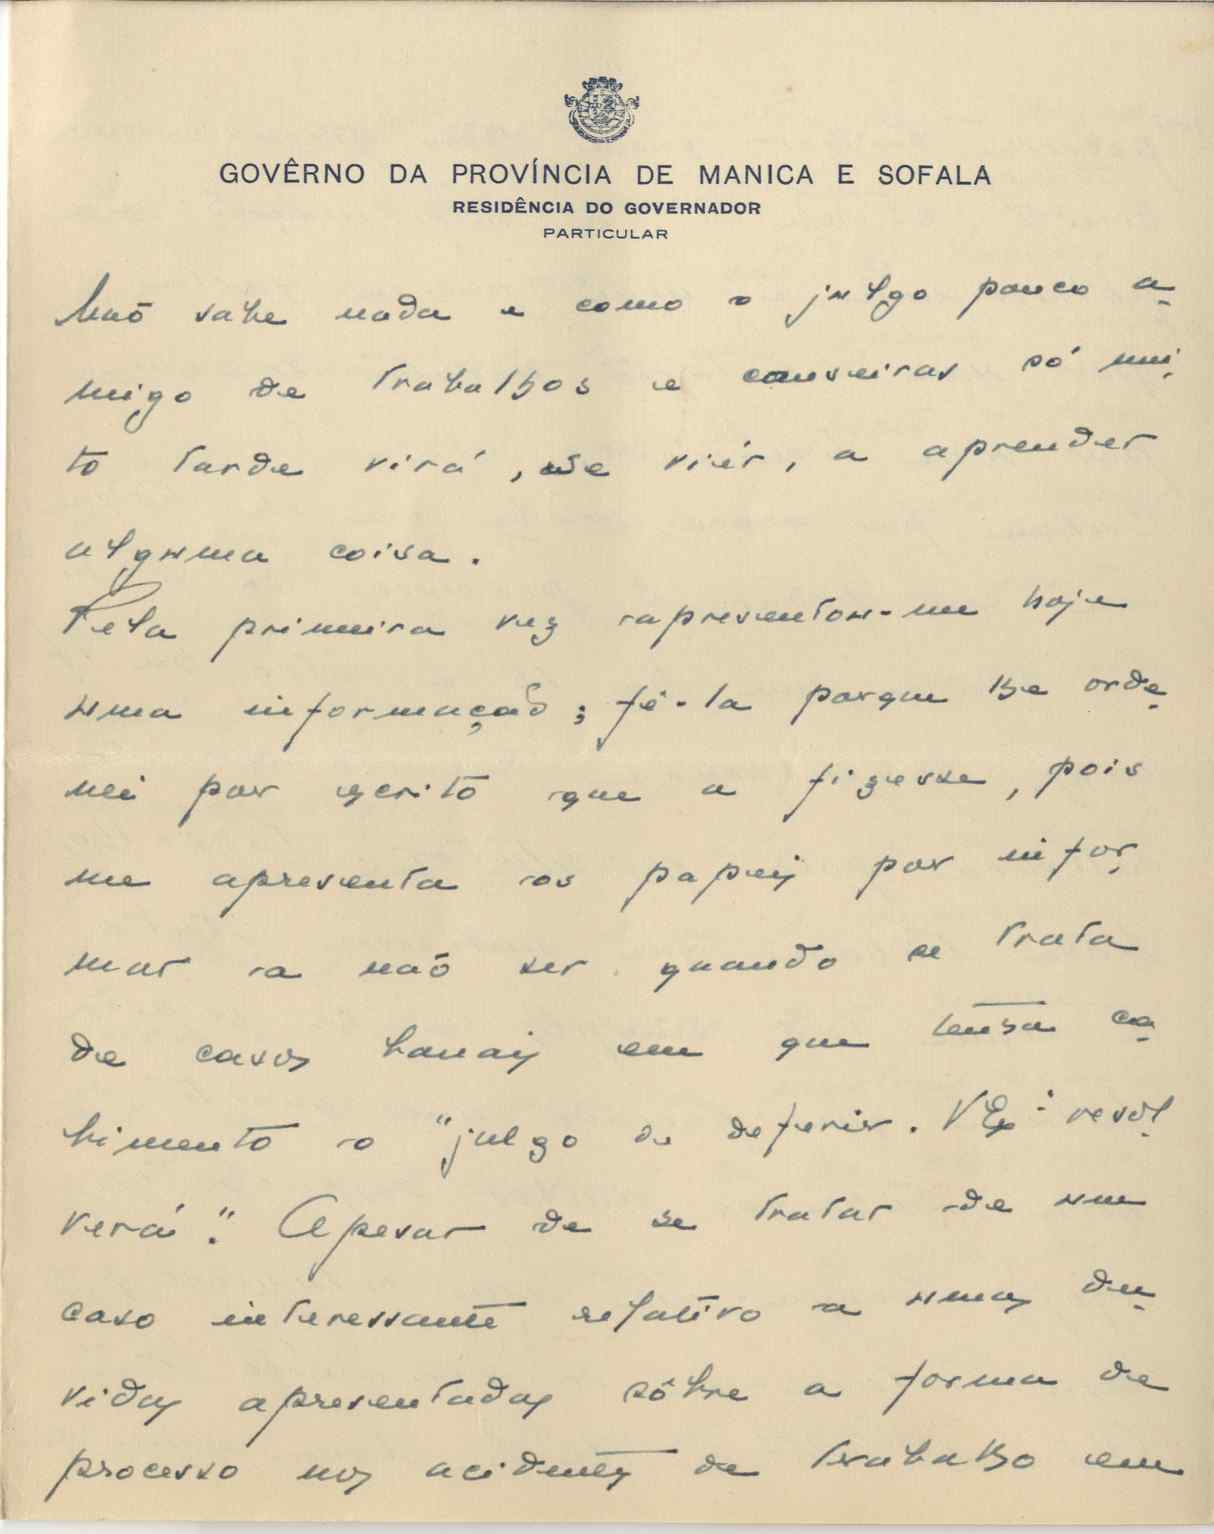 GOVÊRNO DA PROVÍNCIA DE MANICA E SOFALA
RESIDÊNCIA DO GOVERNADOR
PARTICULAR
Não sabe nada e como o julgo pouco a-
migo de trabalhos e canseiras só mui-
to tarde virá, se viér, a aprender
alguma coisa.
Pela primeira vez apresentou-me hoje
uma informação; fê-la porque lhe orde-
nei por escrito que a fizesse, pois
me apresenta os papeis por infor-
mar a não ser quando se trata
de casos banais em que tenha ca-
bimento o "julgo de deferir. V Exª resol-
verá". Apesar de se tratar de um
caso interessante relativo a umas du-
vidas apresentadas sôbre a forma de
processo nos acidentes de trabalho em